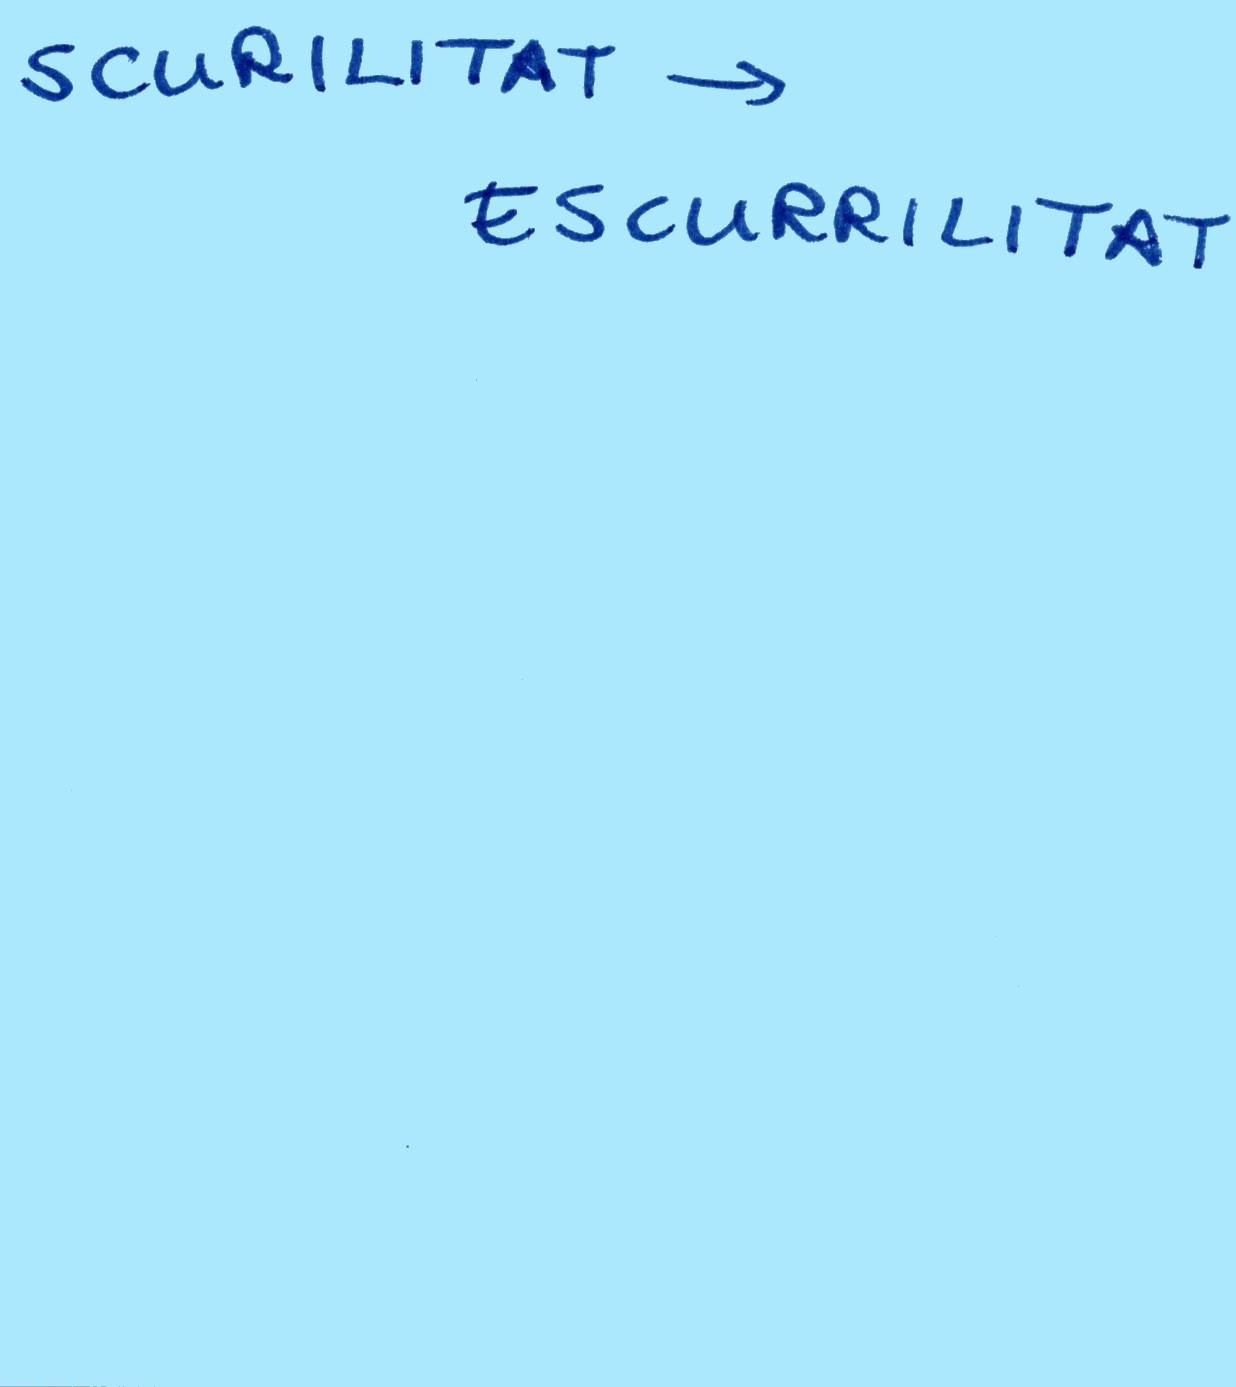 SCURILITAT →
ESCURRILITAT